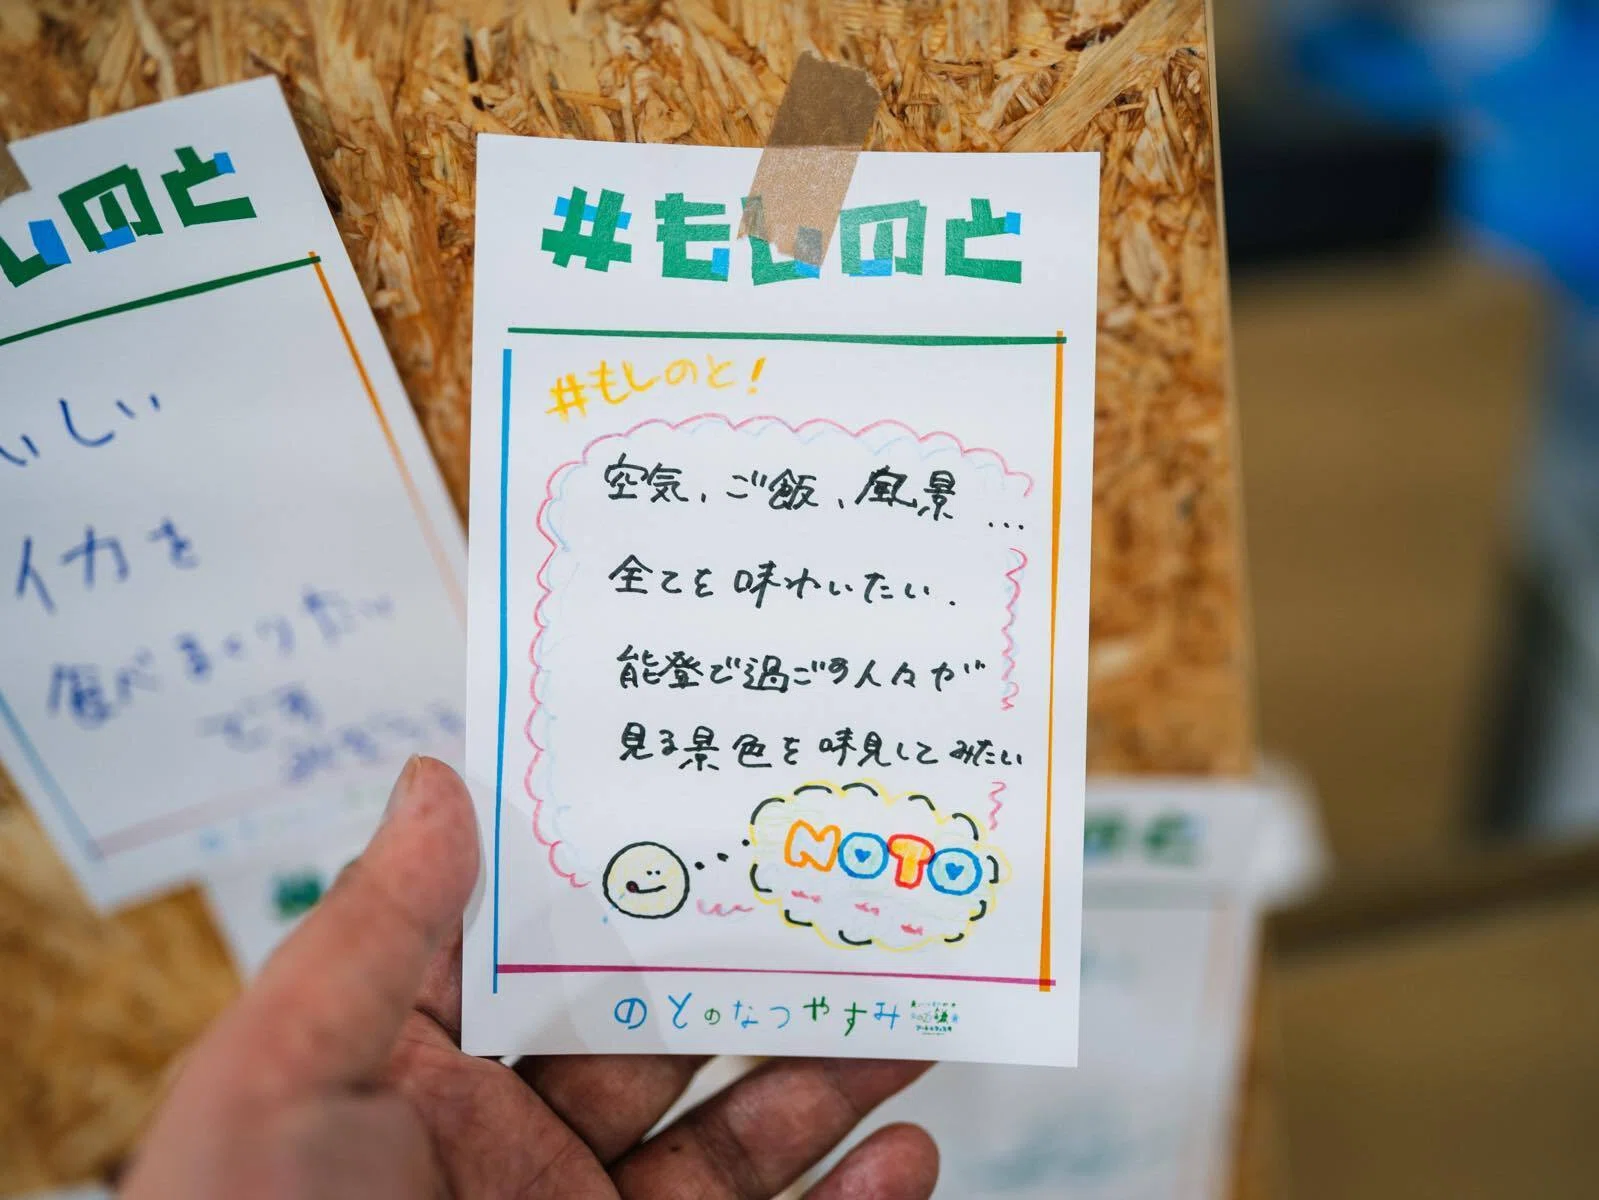 #もしのと
#もしのと!
空気、ご飯、風景…
全てを味わいたい.
能登で過ごす人々が
見る景色を味見してみたい
NOTO
のとのなつやすみ
しのと
いしい
イカを
食べまくりたい
です